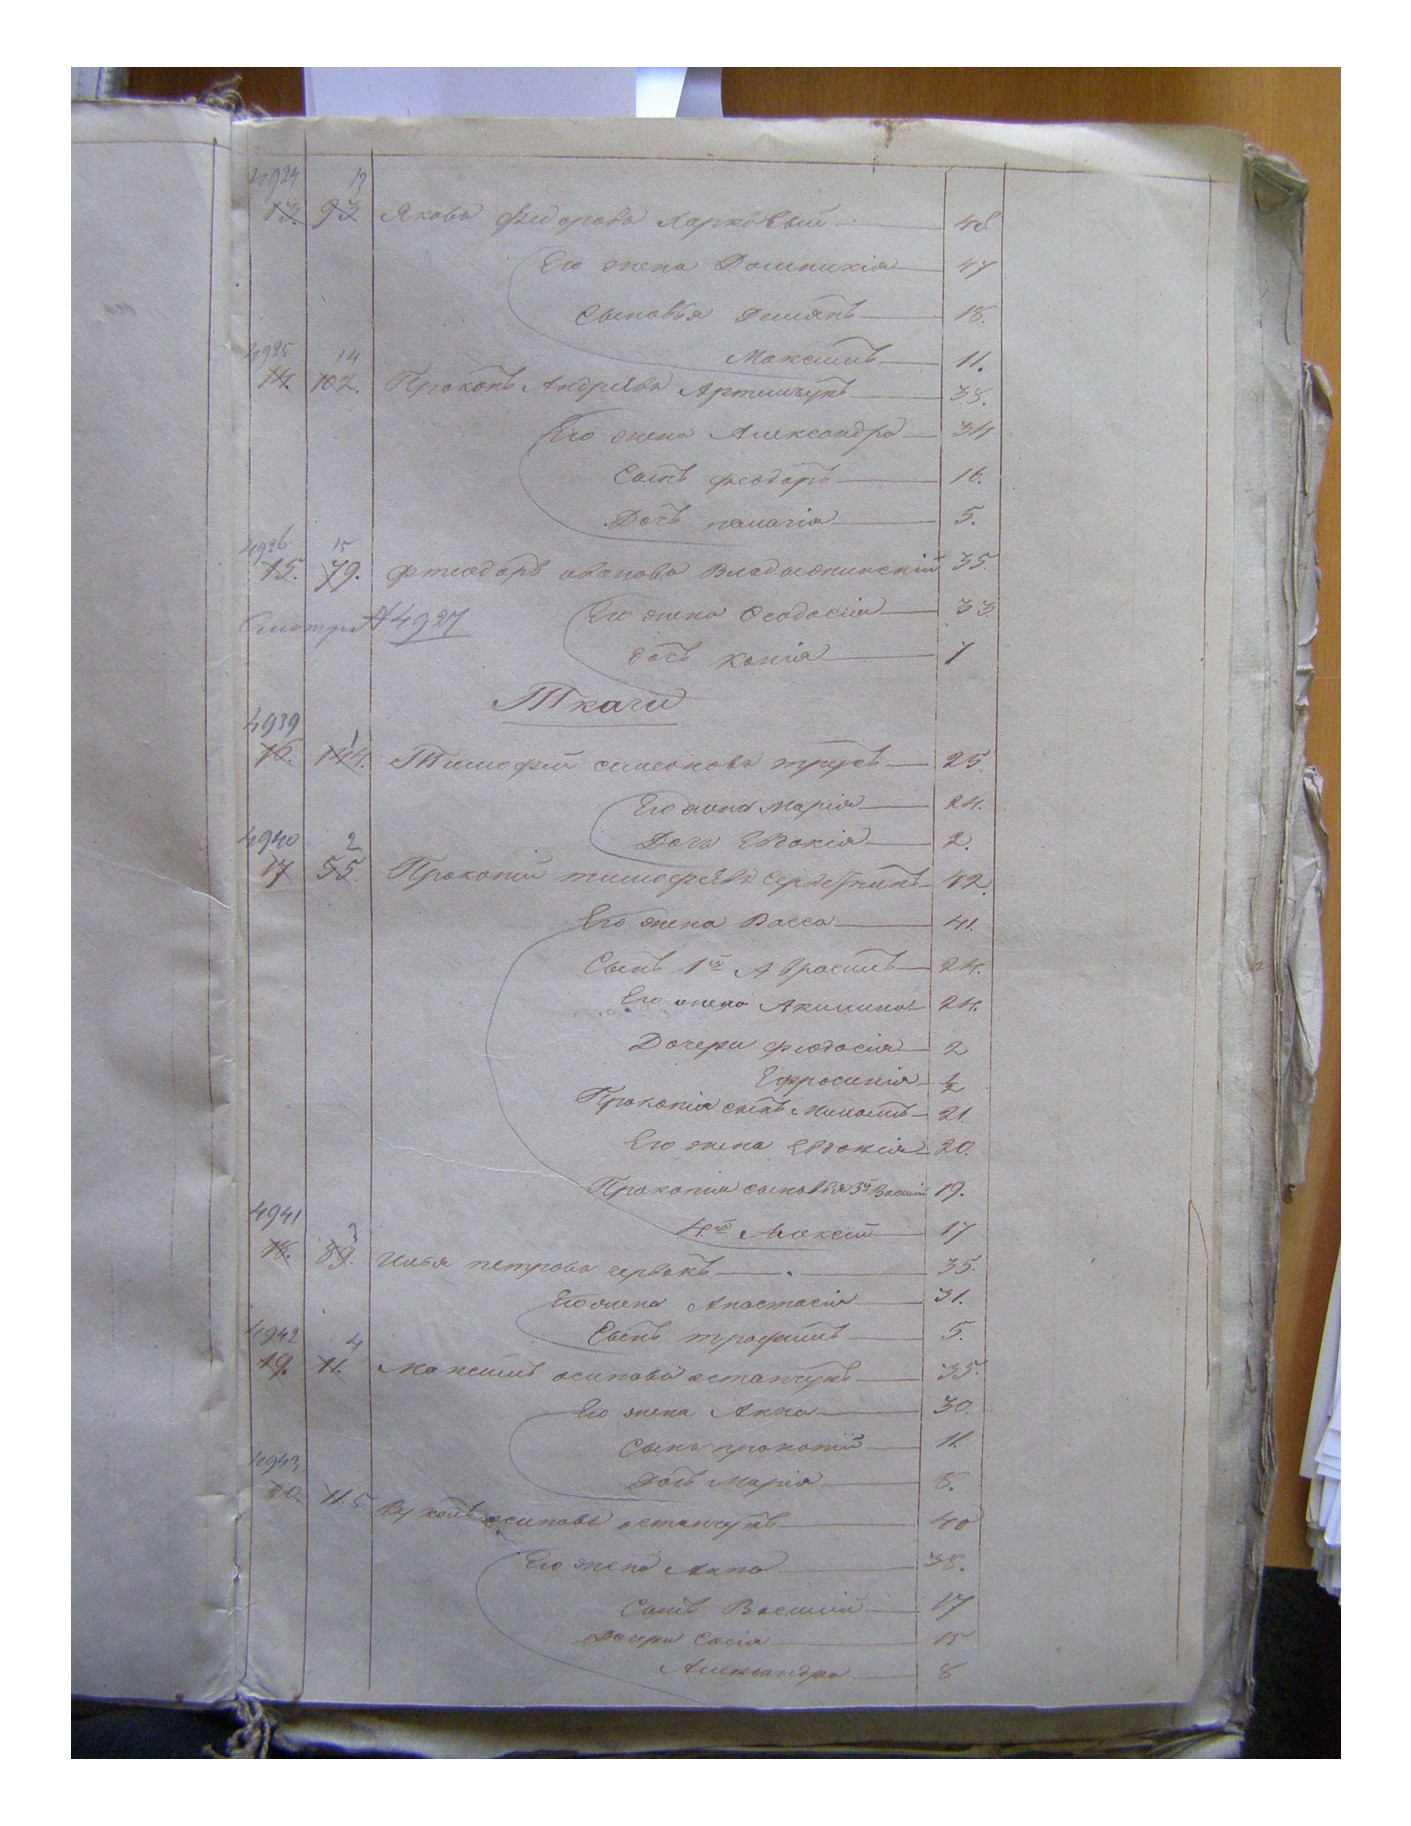 4924 13
13. 93 Яковъ Федоровъ Харковый 48
Его жена Домникія 47
Сыновья Демянъ 18.
4925 14 Максимъ 11.
14. 102. Прокопъ Андрѣевъ Артемчукъ 38.
Его жена Александра 34
Сынъ Феодоръ 16.
Дочь Пелагія 5.
4926 15
15. 79. Фтеодоръ Ивановъ 35.
Смотри № 4927 Его жена Феодосія 33
дочь 7
Ткачи
4939 1
16. 144. Тимофей Симеоновъ Трусъ 25.
Его жена Марія 24.
4940 2 Дочь Евдокія 2.
17 55. Прокопій Тимофѣевъ 42.
Его жена Васса 41.
Сынъ 1й Аврамъ 24.
Его жена Акилина 24.
Дочери Феодосія 2
Ефросинія ½
Прокопія сынъ 21.
Его жена Евдокія 20.
Прокопія сыновья 3й Василій 19.
4941 3 4й Алексей 17
18. 89. Илья Петровъ Червакъ 35.
Его жена Анастасія 31.
4942 4 Сынъ Трофимъ 5.
19. 11. Максимъ Осиповъ Остапчукъ 35.
Его жена Анна 30.
Сынъ Прокопій 11.
4943 Дочь Марія 8.
20. 11. 5 Вуколъ Осиповъ Остапчукъ 40
Его жена Анна 38.
Сынъ Василій 17
Дочери Софія 15
Александра 8